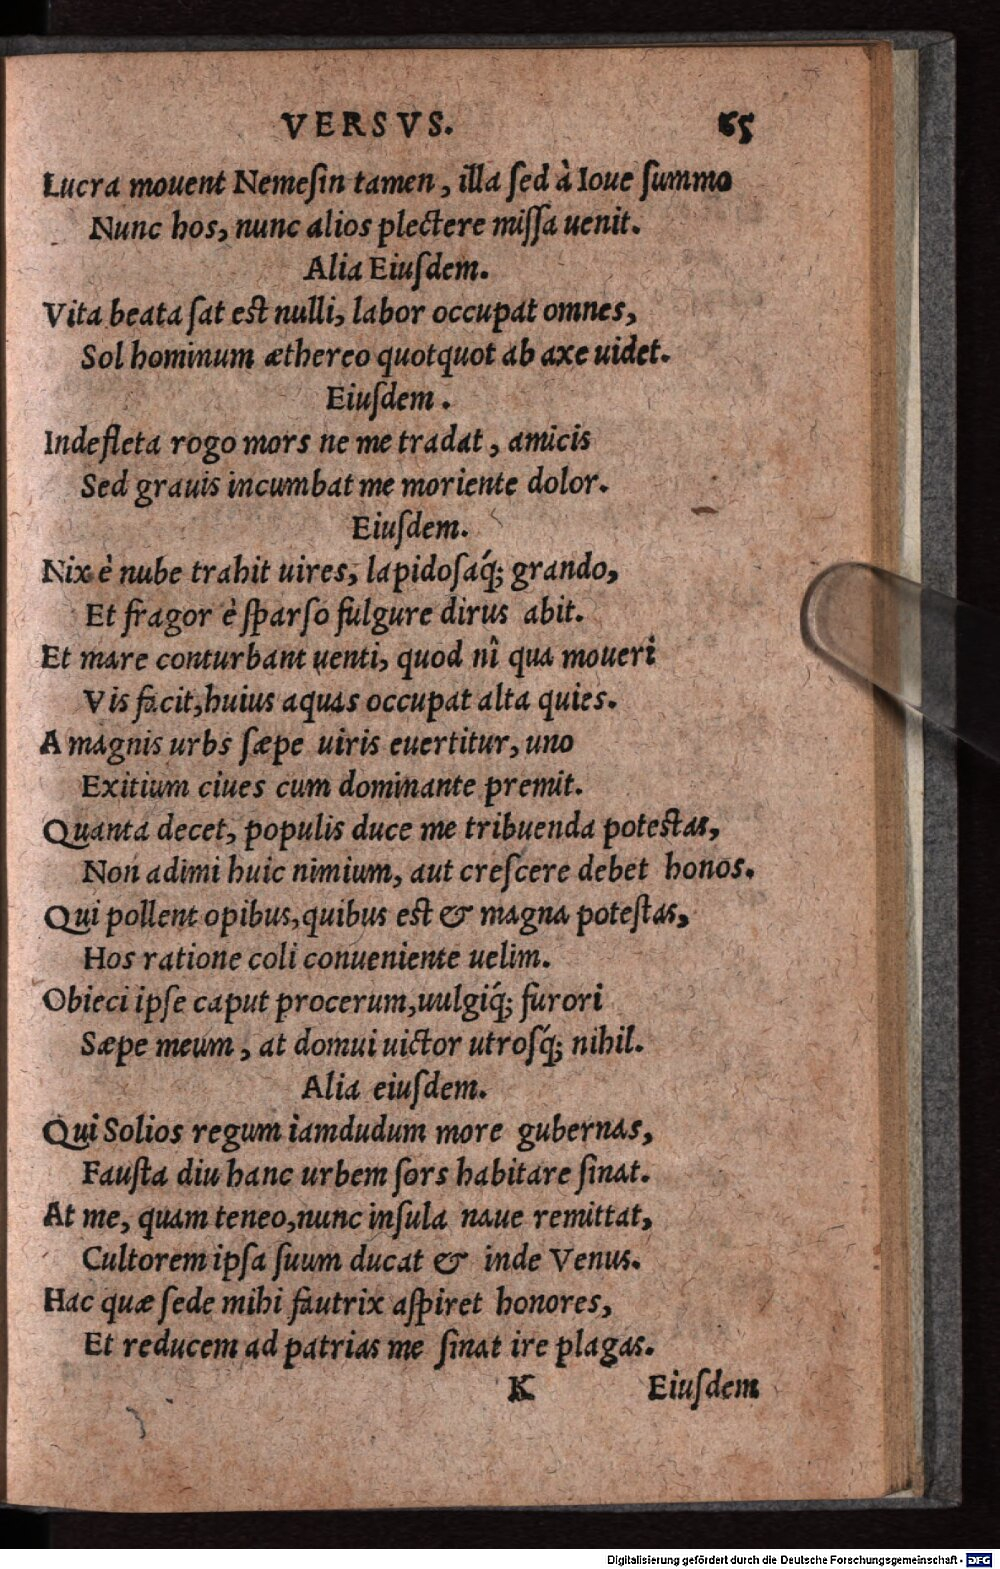 VERSVS. 65
Lucra mouent Nemeſin tamen, illa ſed à Ioue ſummo
Nunc hos, nunc alios plectere miſſa uenit.
Alia Eiuſdem.
Vita beata ſat est nulli, labor occupat omnes,
Sol hominum æthereo quotquot ab axe uidet.
Eiuſdem.
Indefleta rogo mors ne me tradat, amicis
Sed grauis incumbat me moriente dolor.
Eiuſdem.
Nix è nube trahit uires, lapidoſaq́; grando,
Et fragor è ſparſo fulgure dirus abit.
Et mare conturbant uenti, quod nî qua moueri
Vis facit, huius aquas occupat alta quies.
A magnis urbs ſæpe uiris euertitur, uno
Exitium ciues cum dominante premit.
Quanta decet, populis duce me tribuenda potestas,
Non adimi huic nimium, aut creſcere debet honos.
Qui pollent opibus, quibus est & magna poteſtas,
Hos ratione coli conueniente uelim.
Obieci ipſe caput procerum, uulgiq́; furori
Sæpe meum, at domui uictor utroſq́; nihil.
Alia eiuſdem.
Qui Solios regum iamdudum more gubernas,
Fauſta diu hanc urbem ſors habitare ſinat.
At me, quam teneo, nunc inſula naue remittat,
Cultorem ipſa ſuum ducat & inde Venus.
Hac quæ ſede mihi fautrix aſpiret honores,
Et reducem ad patrias me ſinat ire plagas.
K Eiuſdem
Digitalisierung gefördert durch die Deutsche Forschungsgemeinschaft - DFG